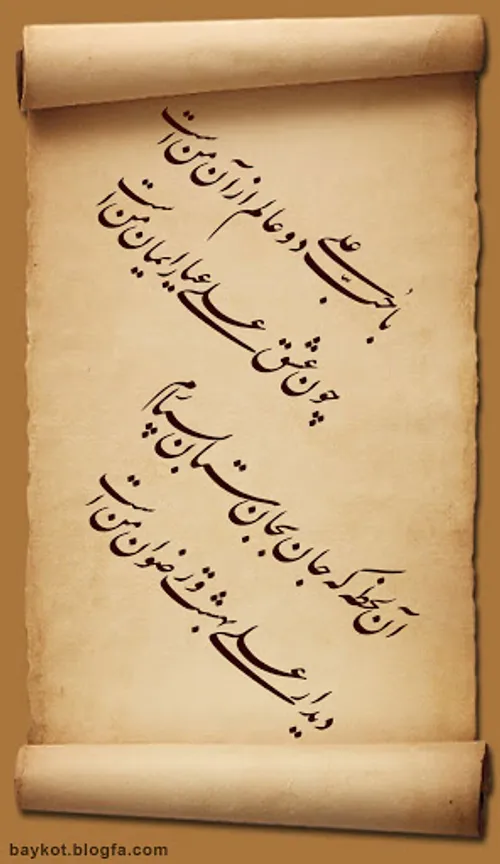 با حُبّ علی دو عالم از آن من است
چون عشق علی عیار ایمان من است
آن لحظه که جان بجان ستان بسپارم
دیدار علی بهشت و رضوان من است
baykot.blogfa.com